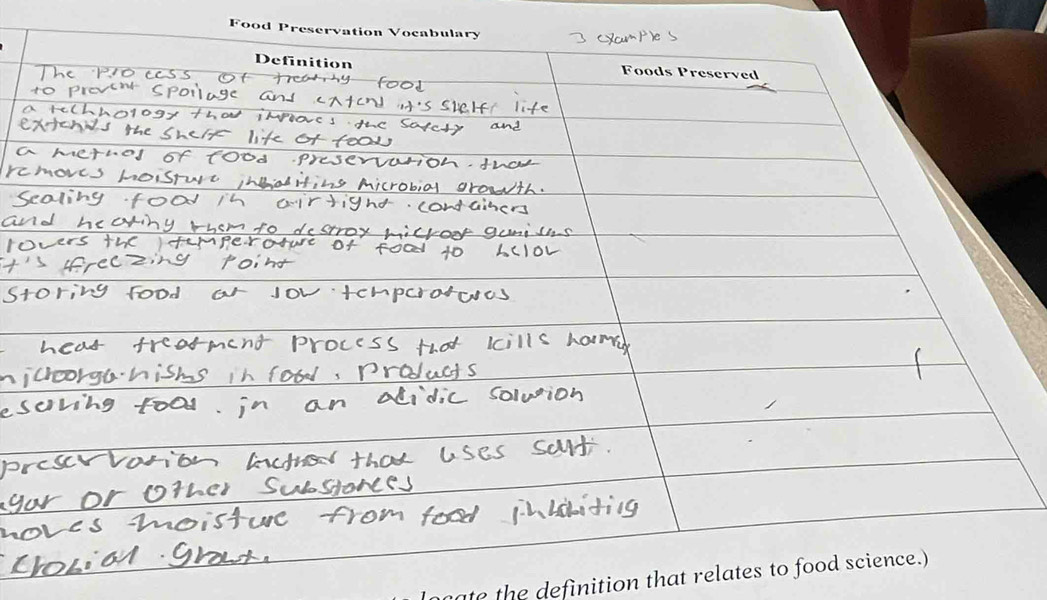 Food Preservation Vocabulary
3 examples
Definition
Foods Preserved
The process of treating food
to prevent spoilage and extend it's shelf life
a technology that improves the safety and
extends the shelf life of foods
a method of food preservation that
removes moisture inhibiting microbial growth.
Sealing food in airtight containers
and heating them to destroy microorganisms
lowers the temperature of food to below
it's freezing point
Storing food at low temperatures
heat treatment process that kills
in food, products
food in an acidic solution
preservation method that uses salt
or other substances
moisture from food inhibiting
growth.
the definition that relates to food science.)